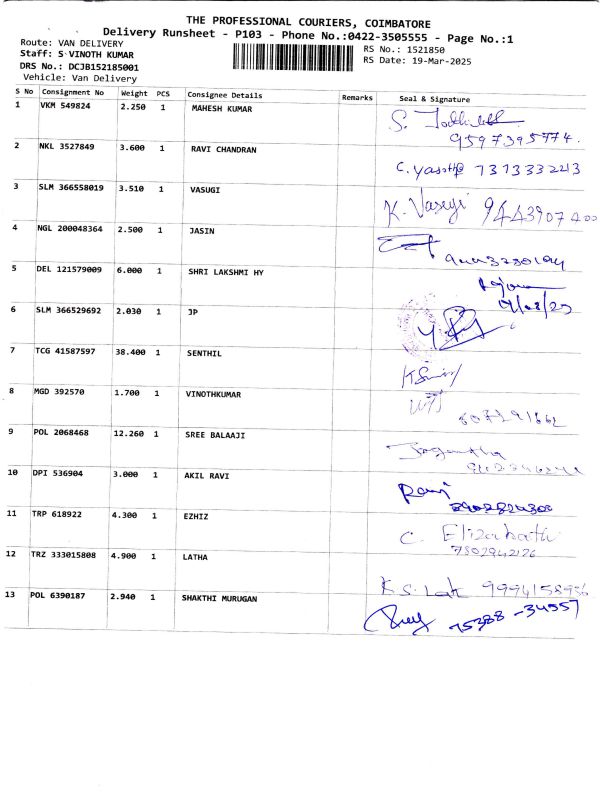 THE PROFESSIONAL COURIERS, COIMBATORE
Delivery Runsheet - P103 - Phone No.:0422-3505555 - Page No.:1
Route: VAN DELIVERY
Staff: S VINOTH KUMAR
DRS No.: DCJB152185001
Vehicle: Van Delivery
RS No.: 1521850
RS Date: 19-Mar-2025
S No Consignment No Weight PCS Consignee Details Remarks Seal & Signature
1 VKM 549824 2.250 1 MAHESH KUMAR S.
9597395774.
2 NKL 3527849 3.600 1 RAVI CHANDRAN C. 7373332213
3 SLM 366558019 3.510 1 VASUGI K. Vasugi 9443907400
4 NGL 200048364 2.500 1 JASIN
5 DEL 121579009 6.000 1 SHRI LAKSHMI HY
6 SLM 366529692 2.030 1 JP
7 TCG 41587597 38.400 1 SENTHIL
8 MGD 392570 1.700 1 VINOTHKUMAR
9 POL 2068468 12.260 1 SREE BALAAJI
10 DPI 536904 3.000 1 AKIL RAVI Ravi
11 TRP 618922 4.300 1 EZHIZ C. Elizabath
7502942126
12 TRZ 333015808 4.900 1 LATHA K.S. Lat 9994158936
13 POL 6390187 2.940 1 SHAKTHI MURUGAN 75388-34557